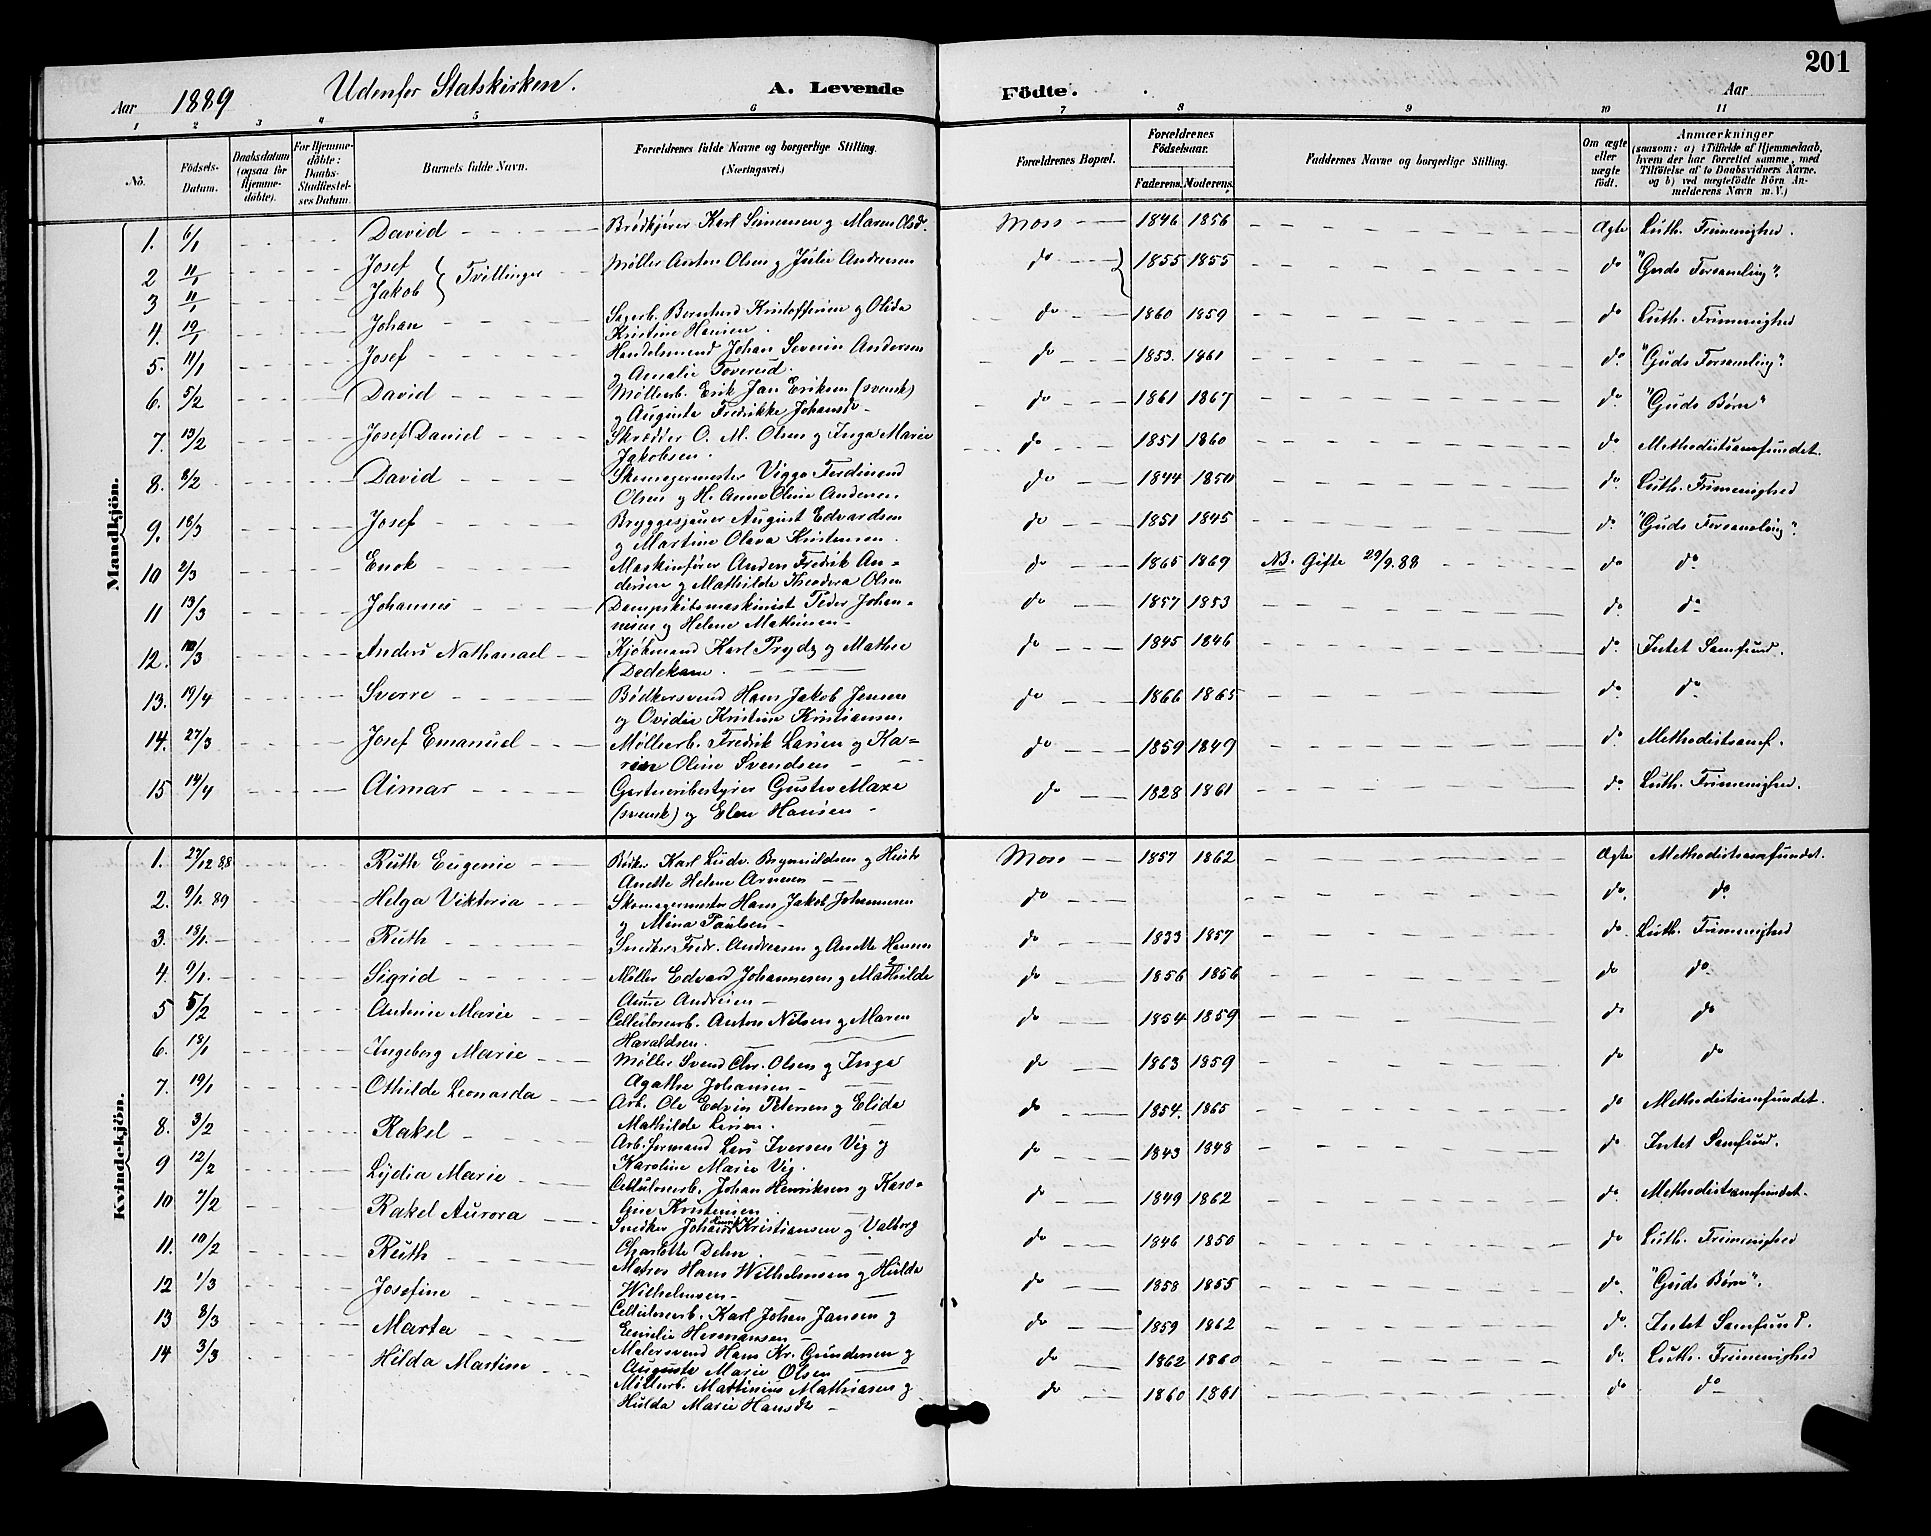 201
Aar 1889 Udenfor Statskirken. A. Levende Födte. Aar
1 2 3 4 5 6 7 8 9 10 11
Nö. Födsels-Datum. Daabsdatum (ogsaa for Hjemme-döbte). For Hjemme-döbte: Daabs-Stadfæstel-ses Datum. Barnets fulde Navn. Forældrenes fulde Navne og borgerlige Stilling. (Næringsvei.) Forældrenes Bopæl. Forældrenes Födselsaar. Faderens. Moderens. Faddernes Navne og borgerlige Stilling. Om ægte eller uægte födt. Anmærkninger (saasom: a) i Tilfælde af Hjemmedaab, hvem der har forrettet samme, med Tilföielse af to Daabsvidners Navne. og b) ved uægtefödte Börn An-melderens Navn m. V.)
Mandkjön.
1. 6/1 David Brødkjører Karl Simensen og Maren Olsd. Moss 1846 1856 Ægte Luth. Frimenighed.
2 11/1 Josef } Tvillinger Møller Anton Olsen og Julie Andersen do 1855 1855 do "Guds Forsamling".
3 11/1 Jakob
4. 19/1 Johan Sagarb. Bernhard Kristoffersen og Olida Kristine Hansen. do 1860 1859 do Luth. Frimenighed
5. 11/1 Josef Handelsmand Johan Severin Andersen og Amalie Toverud. do 1853. 1861 do. "Guds Forsamling".
6. 5/2 David Møllerb. Erik Jan Eriksen (svensk) og Augusta Fredrikke Johansdr do 1861 1867 do. "Guds Børn"
7. 13/2 Josef Daniel Skrædder O. M. Olsen og Inga Marie Jakobsen. do 1851 1860 do. Methodistsamfundet.
8. 8/2 David Skomagermester Viggo Ferdinand Olsen og H. Anna Oline Andersen. do 1844 1850 do. Luth. Frimenighed
9. 18/3 Josef Bryggesjauer August Edvardsen og Martine Olava Kristensen. do 1851 1845 do. "Guds Forsamling".
10 2/3 Enok Maskinfører Anders Fredrik An-dersen og Mathilde Theodora Olsen do 1865 1869 NB. Gifte 29/9.88 do do
11 13/3 Johannes Dampskibsmaskinist Peder Johan-nesen og Helene Mathisen do 1857 1853 do. do
12. 10/3 Anders Nathanael Kjøbmand Karl Prydz og Mathea Dedekam. do 1845 1846 do. Intet Samfund.
13. 19/4 Sverre Bødkersvend Hans Jakob Jensen og Ovidia Kristine Kristiansen. do 1866 1865 do. do
14. 27/3 Josef Emanuel Møllerb. Fredrik Larsen og Ka-ren Oline Svendsen do 1859 1849 do. Methodistsamf.
15 14/4 Aimar Gartneribestyrer Gustav Maxe (svensk) og Elen Hansen do 1828 1861 do. Luth. Frimenighed.
Kvindekjön.
1. 27/12 88 Ruth Eugenie Karl Ludv. Brynildsen og Anette Helene Arnesen Moss 1857 1862 Ægte Methodistsamfundet.
2. 9/1. 89 Helga Viktoria Skomagermester Hans Jakob Johannesen og Mina Paulsen do do. do.
3. 13/1. Ruth Snedker Fredr. Andreasen og Anette Hansen do 1833 1857 do. Luth. Frimenighed
4. 9/1. Sigrid Møller Edvard Johannesen og Mathilde Anne Andersen do 1856 1856 do do.
5 5/2 Antonie Marie Cellulosearb. Anton Nilsen og Maren Haraldsen. do 1854 1859 do do
6. 18/1 Ingeborg Marie Møller Svend Chr. Olsen og Inga Agathe Johansen do 1863 1859 do do
7. 19/1 Othilde Leonarda Arb. Ole Edvin Petersen og Elida Mathilde do 1854. 1865 do Methodistsamfundet.
8. 3/2 Rakel Arb. formand Lars Iversen Vig og Karoline Marie Vig. do 1843 1848 do. Intet Samfund.
9 12/2 Lydia Marie Cellulosearb. Johan Henriksen og Karo-line Kristensen do 1849 1862 do. Methodistsamfundet.
10 7/2 Rakel Aurora Snedker Johan Henrik Kristiansen og Valborg Charlotte Dehn. do 1846 1850 do Luth. Frimenighed
11. 10/2 Ruth Matros Hans Wilhelmsen og Hulda Wilhelmsen do 1858 1855 do. "Guds Børn".
12 1/3 Josefine Cellulosearb. Karl Johan Jansen og Emilie Hermansen do 1859 1862 do. Intet Samfund.
13 8/3 Marta Malersvend Hans Kr. Gundersen og Augusta Marie Olsen do 1862 1860 do. Luth. Frimenighed
14 3/3 Hilda Martine Møllerb. Martinius Mathiasen og Hulda Marie Hansdr do 1860 1861 do do